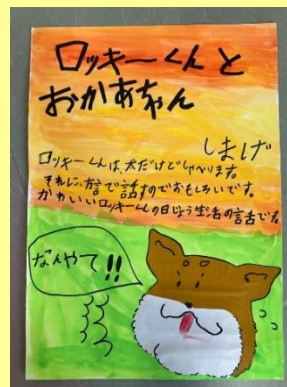 ロッキーくんと
おかあちゃん
しまげ
ロッキーくんは、犬だけどしゃべります。
それに、方言で話すのでおもしろいです。
かわいいロッキーくんの日じょう生活の言舌です。
なんやて!!